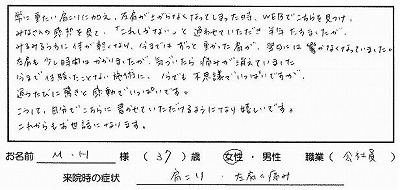 常に重たい肩こりに加え、左肩が上がらなくなってしまった時、WEBでこちらを見つけ、
みなさんの感想を見て、「これしかない」と思わせていただき来院しましたが、
みるみるうちに体が軽くなり、今まではずっと重かった肩が、翌日には驚がなくなっていました。
左肩も少し時間はかかりましたが、気づいたら痛みが消えていました
今まで体験したことない施術に、いつも不思議でいっぱいですが、
通うたびに驚きと感動でいっぱいです。
こうして、自分でこちらに書かせていただけるようになり嬉しいです。
これからもお世話になります。
お名前 M.H 様 (37)歳 女性・男性 職業(会社員)
来院時の症状 肩こり・左肩の痛み